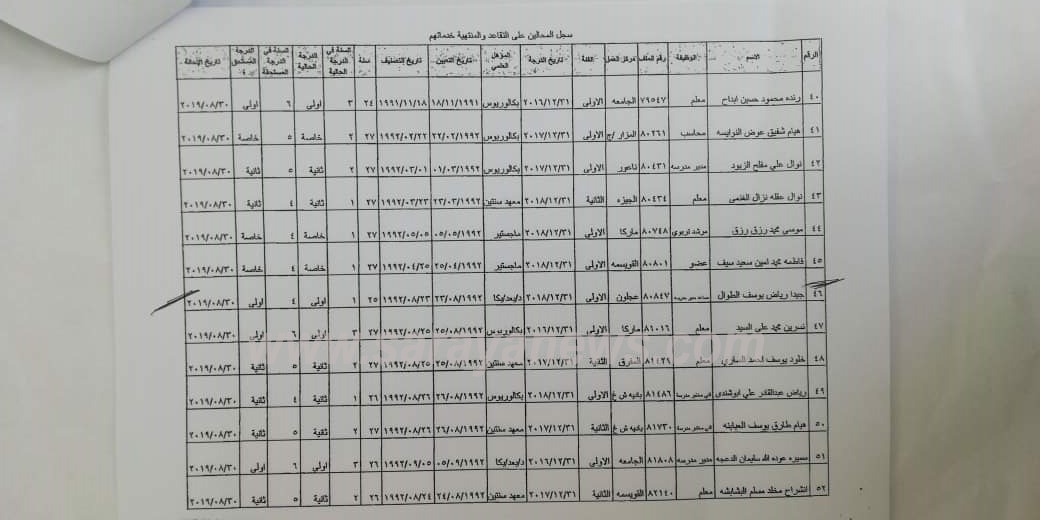 سجل المحالين على التقاعد والمنتهية خدماتهم
الرقم الاسم الوظيفة رقم الملف مركز العمل الفئة تاريخ الدرجة المؤهل العلمي تاريخ التعيين تاريخ التصنيف سنة السنة في الدرجة الحالية الدرجة الحالية السنة في الدرجة المستحقة الدرجة المستحقة تاريخ الإحالة
٤٠ رنده محمود حسين ابداح معلم ٧٩٥٤٧ الجامعه الاولى ٢٠١٦/١٢/٣١ بكالوريوس ١٨/١١/١٩٩١ ١٩٩١/١١/١٨ ٢٤ ٣ اولى ٦ اولى ٢٠١٩/٠٨/٣٠
٤١ هيام شفيق عوض النوايسه محاسب ٨٠٢٦١ المزار /ج الاولى ٢٠١٧/١٢/٣١ بكالوريوس ٢٢/٠٢/١٩٩٢ ١٩٩٢/٠٢/٢٢ ٢٧ ٢ خاصة ٥ خاصة ٢٠١٩/٠٨/٣٠
٤٢ نوال علي مفلح الزيود مدير مدرسه ٨٠٤٣١ ناعور الاولى ٢٠١٧/١٢/٣١ بكالوريوس ٠١/٠٣/١٩٩٢ ١٩٩٢/٠٣/٠١ ٢٧ ٢ ثانية ٥ ثانية ٢٠١٩/٠٨/٣٠
٤٣ نوال عقله نزال الغنمي معلم ٨٠٤٣٤ الجيزه الثانية ٢٠١٨/١٢/٣١ معهد سنتين ٢٣/٠٣/١٩٩٢ ١٩٩٢/٠٣/٢٣ ٢٧ ١ ثانية ٤ ثانية ٢٠١٩/٠٨/٣٠
٤٤ موسى محمد رزق رزق مرشد تربوي ٨٠٧٤٨ ماركا الاولى ٢٠١٨/١٢/٣١ ماجستير ٠٥/٠٥/١٩٩٢ ١٩٩٢/٠٥/٠٥ ٢٧ ١ خاصة ٤ خاصة ٢٠١٩/٠٨/٣٠
٤٥ فاطمه محمد امين سعيد سيف عضو ٨٠٨٠١ القويسمه الاولى ٢٠١٨/١٢/٣١ ماجستير ٢٥/٠٤/١٩٩٢ ١٩٩٢/٠٤/٢٥ ٢٧ ١ خاصة ٤ خاصة ٢٠١٩/٠٨/٣٠
٤٦ جيدا رياض يوسف الطوال ٨٠٨٤٧ عجلون الاولى ٢٠١٨/١٢/٣١ ٢٣/٠٨/١٩٩٢ ١٩٩٢/٠٨/٢٣ ٢٥ ١ اولى ٤ اولى ٢٠١٩/٠٨/٣٠
٤٧ نسرين محمد علي السيد معلم ٨١٠١٦ ماركا الاولى ٢٠١٦/١٢/٣١ بكالوريوس ٢٥/٠٨/١٩٩٢ ١٩٩٢/٠٨/٢٥ ٢٧ ٣ اولى ٦ اولى ٢٠١٩/٠٨/٣٠
www.sarayanews.com
٤٨ خلود يوسف احمد معلم المفرق الثانية ٢٠١٧/١٢/٣١ معهد سنتين ٢٥/٠٨/١٩٩٢ ١٩٩٢/٠٨/٢٥ ٢٧ ٢ ثانية ٥ ثانية ٢٠١٩/٠٨/٣٠
٤٩ رياض عبدالقادر علي ابوشندي ٨١٤٨٦ باديه ش غ الاولى ٢٠١٨/١٢/٣١ بكالوريوس ٢٦/٠٨/١٩٩٢ ١٩٩٢/٠٨/٢٦ ٢٦ ١ ثانية ٤ ثانية ٢٠١٩/٠٨/٣٠
٥٠ هيام طارق يوسف العبابنه ٨١٧٣٠ باديه ش غ الثانية ٢٠١٧/١٢/٣١ معهد سنتين ٢٦/٠٨/١٩٩٢ ١٩٩٢/٠٨/٢٦ ٢٧ ٢ ثانية ٥ ثانية ٢٠١٩/٠٨/٣٠
٥١ مسيره عوده الله سليمان الدعجه مدير مدرسه ٨١٨٠٨ الجامعه الاولى ٢٠١٦/١٢/٣١ ٠٥/٠٩/١٩٩٢ ١٩٩٢/٠٩/٠٥ ٢٦ ٣ اولى ٦ اولى ٢٠١٩/٠٨/٣٠
٥٢ انشراح مخلد مسلم البشابشه معلم ٨٢١٤٠ القويسمه الثانية ٢٠١٧/١٢/٣١ معهد سنتين ٢٤/٠٨/١٩٩٢ ١٩٩٢/٠٨/٢٤ ٢٦ ٢ ثانية ٥ ثانية ٢٠١٩/٠٨/٣٠